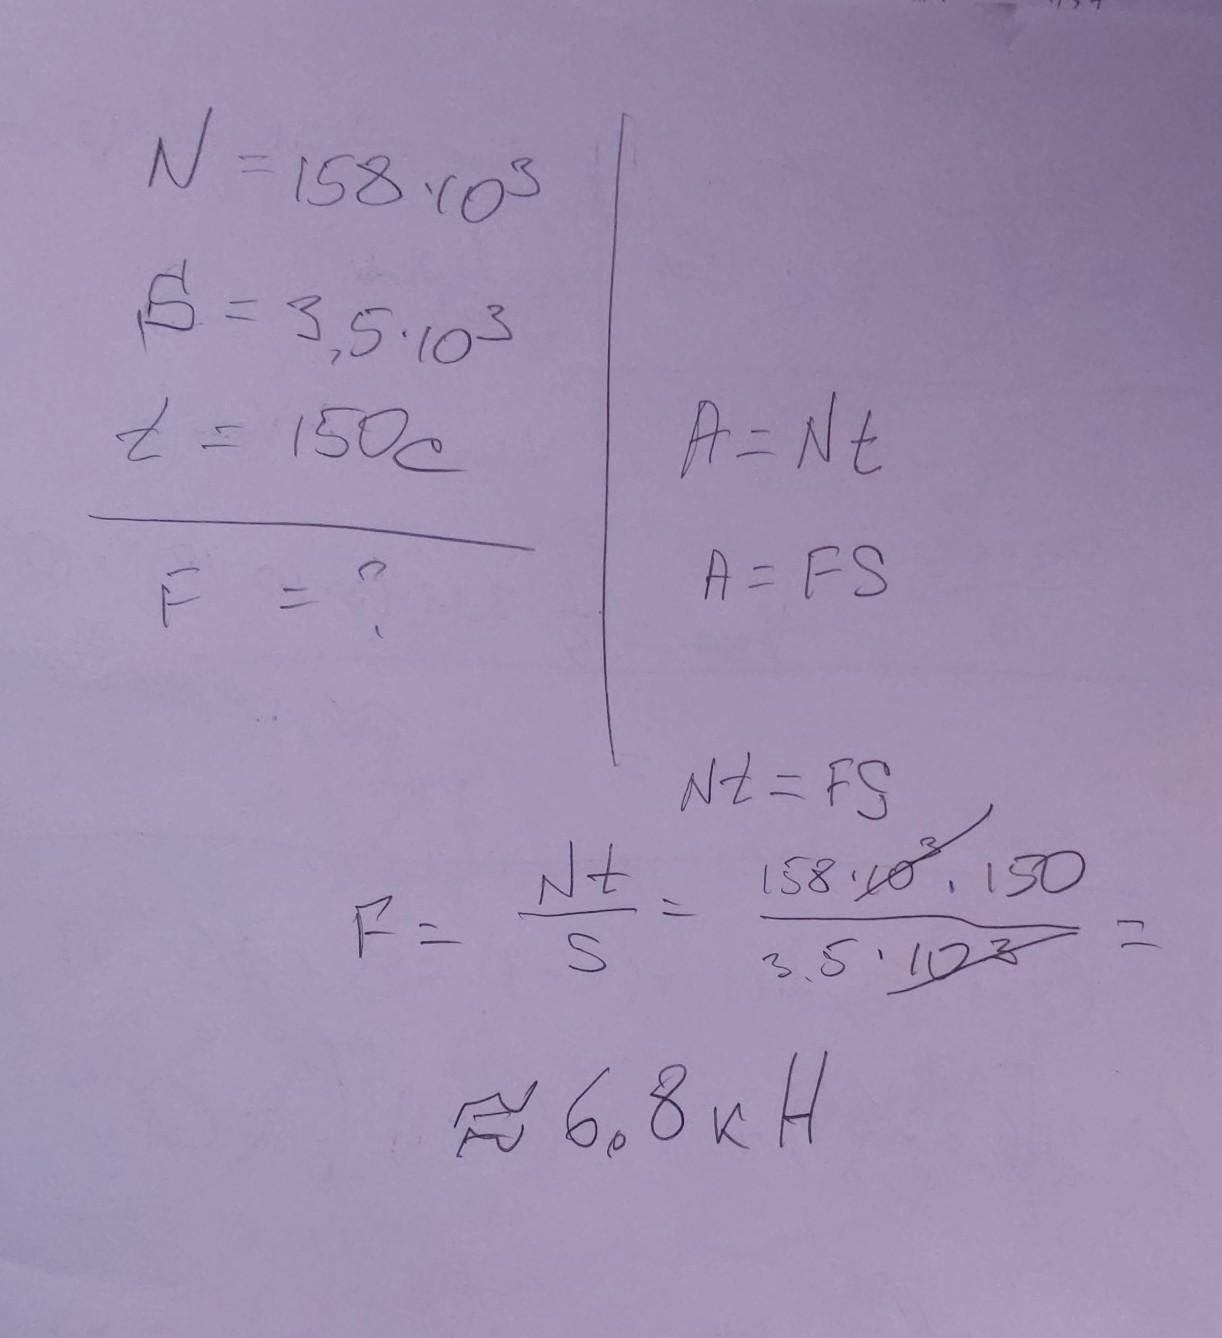 N = 158·10³
S = 3,5·10³
t = 150с
F = ?
A = Nt
A = FS
Nt = FS
F = Nt/S = 158·10³·150 / 3,5·10³ =
≈ 6,8 кН